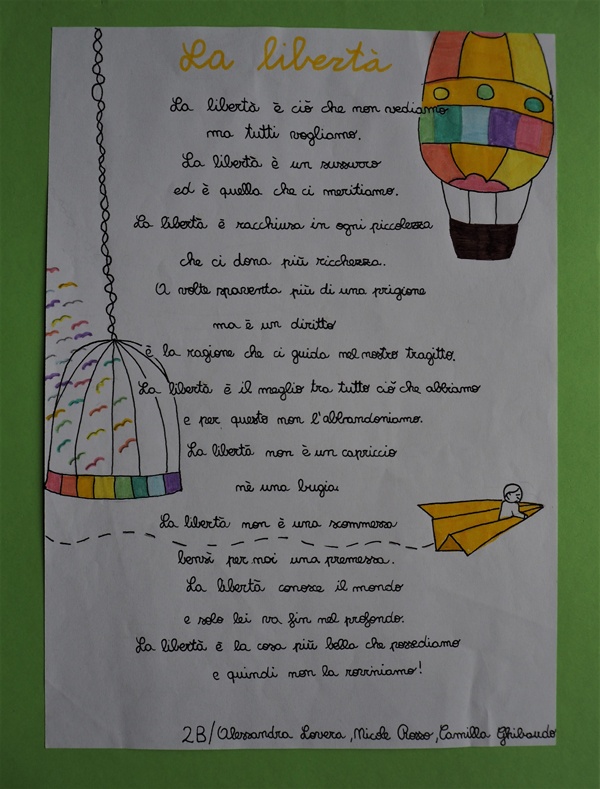 La libertà
La libertà è ciò che non vediamo
ma tutti vogliamo.
La libertà è un sussurro
ed è quella che ci meritiamo.
La libertà è racchiusa in ogni piccolezza
che ci dona più ricchezza.
A volte spaventa più di una prigione
ma è un diritto
è la ragione che ci guida nel nostro tragitto.
La libertà è il meglio tra tutto ciò che abbiamo
e per questo non l'abbandoniamo.
La libertà non è un capriccio
nè una bugia.
La libertà non è una scommessa
bensì per noi una premessa.
La libertà conosce il mondo
e solo lei va fin nel profondo.
La libertà è la cosa più bella che possediamo
e quindi non la roviniamo!
2B/Alessandra Lovera, Nicole Rosso, Camilla Ghibaudo